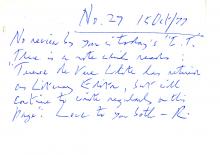 No. 27 15 Oct/77
No review by you in today's "I.T."
There is a note which reads:
"Terence de Vere White has retired
as Literary Editor, but will
continue to write regularly on this
page". Love to you both – R.